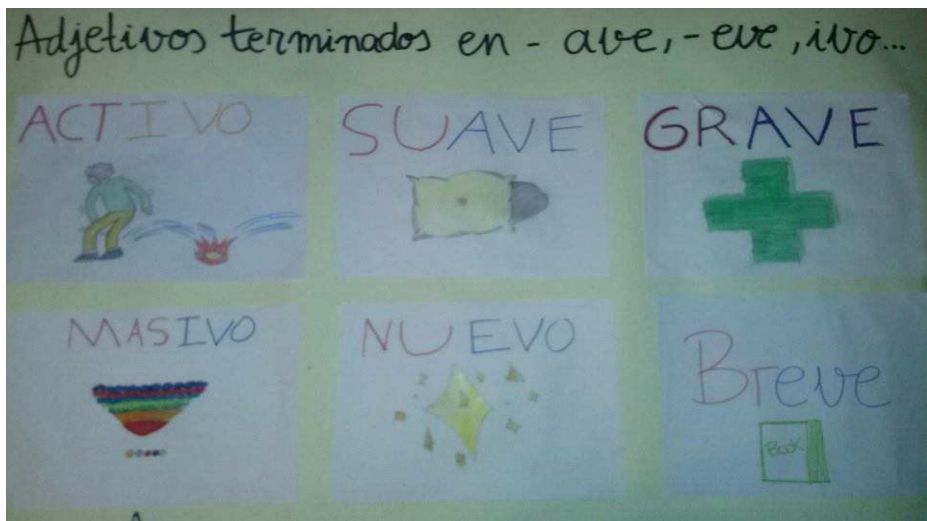 Adjetivos terminados en - ave, - eve, ivo...
ACTIVO SUAVE GRAVE
MASIVO NUEVO Breve
Book